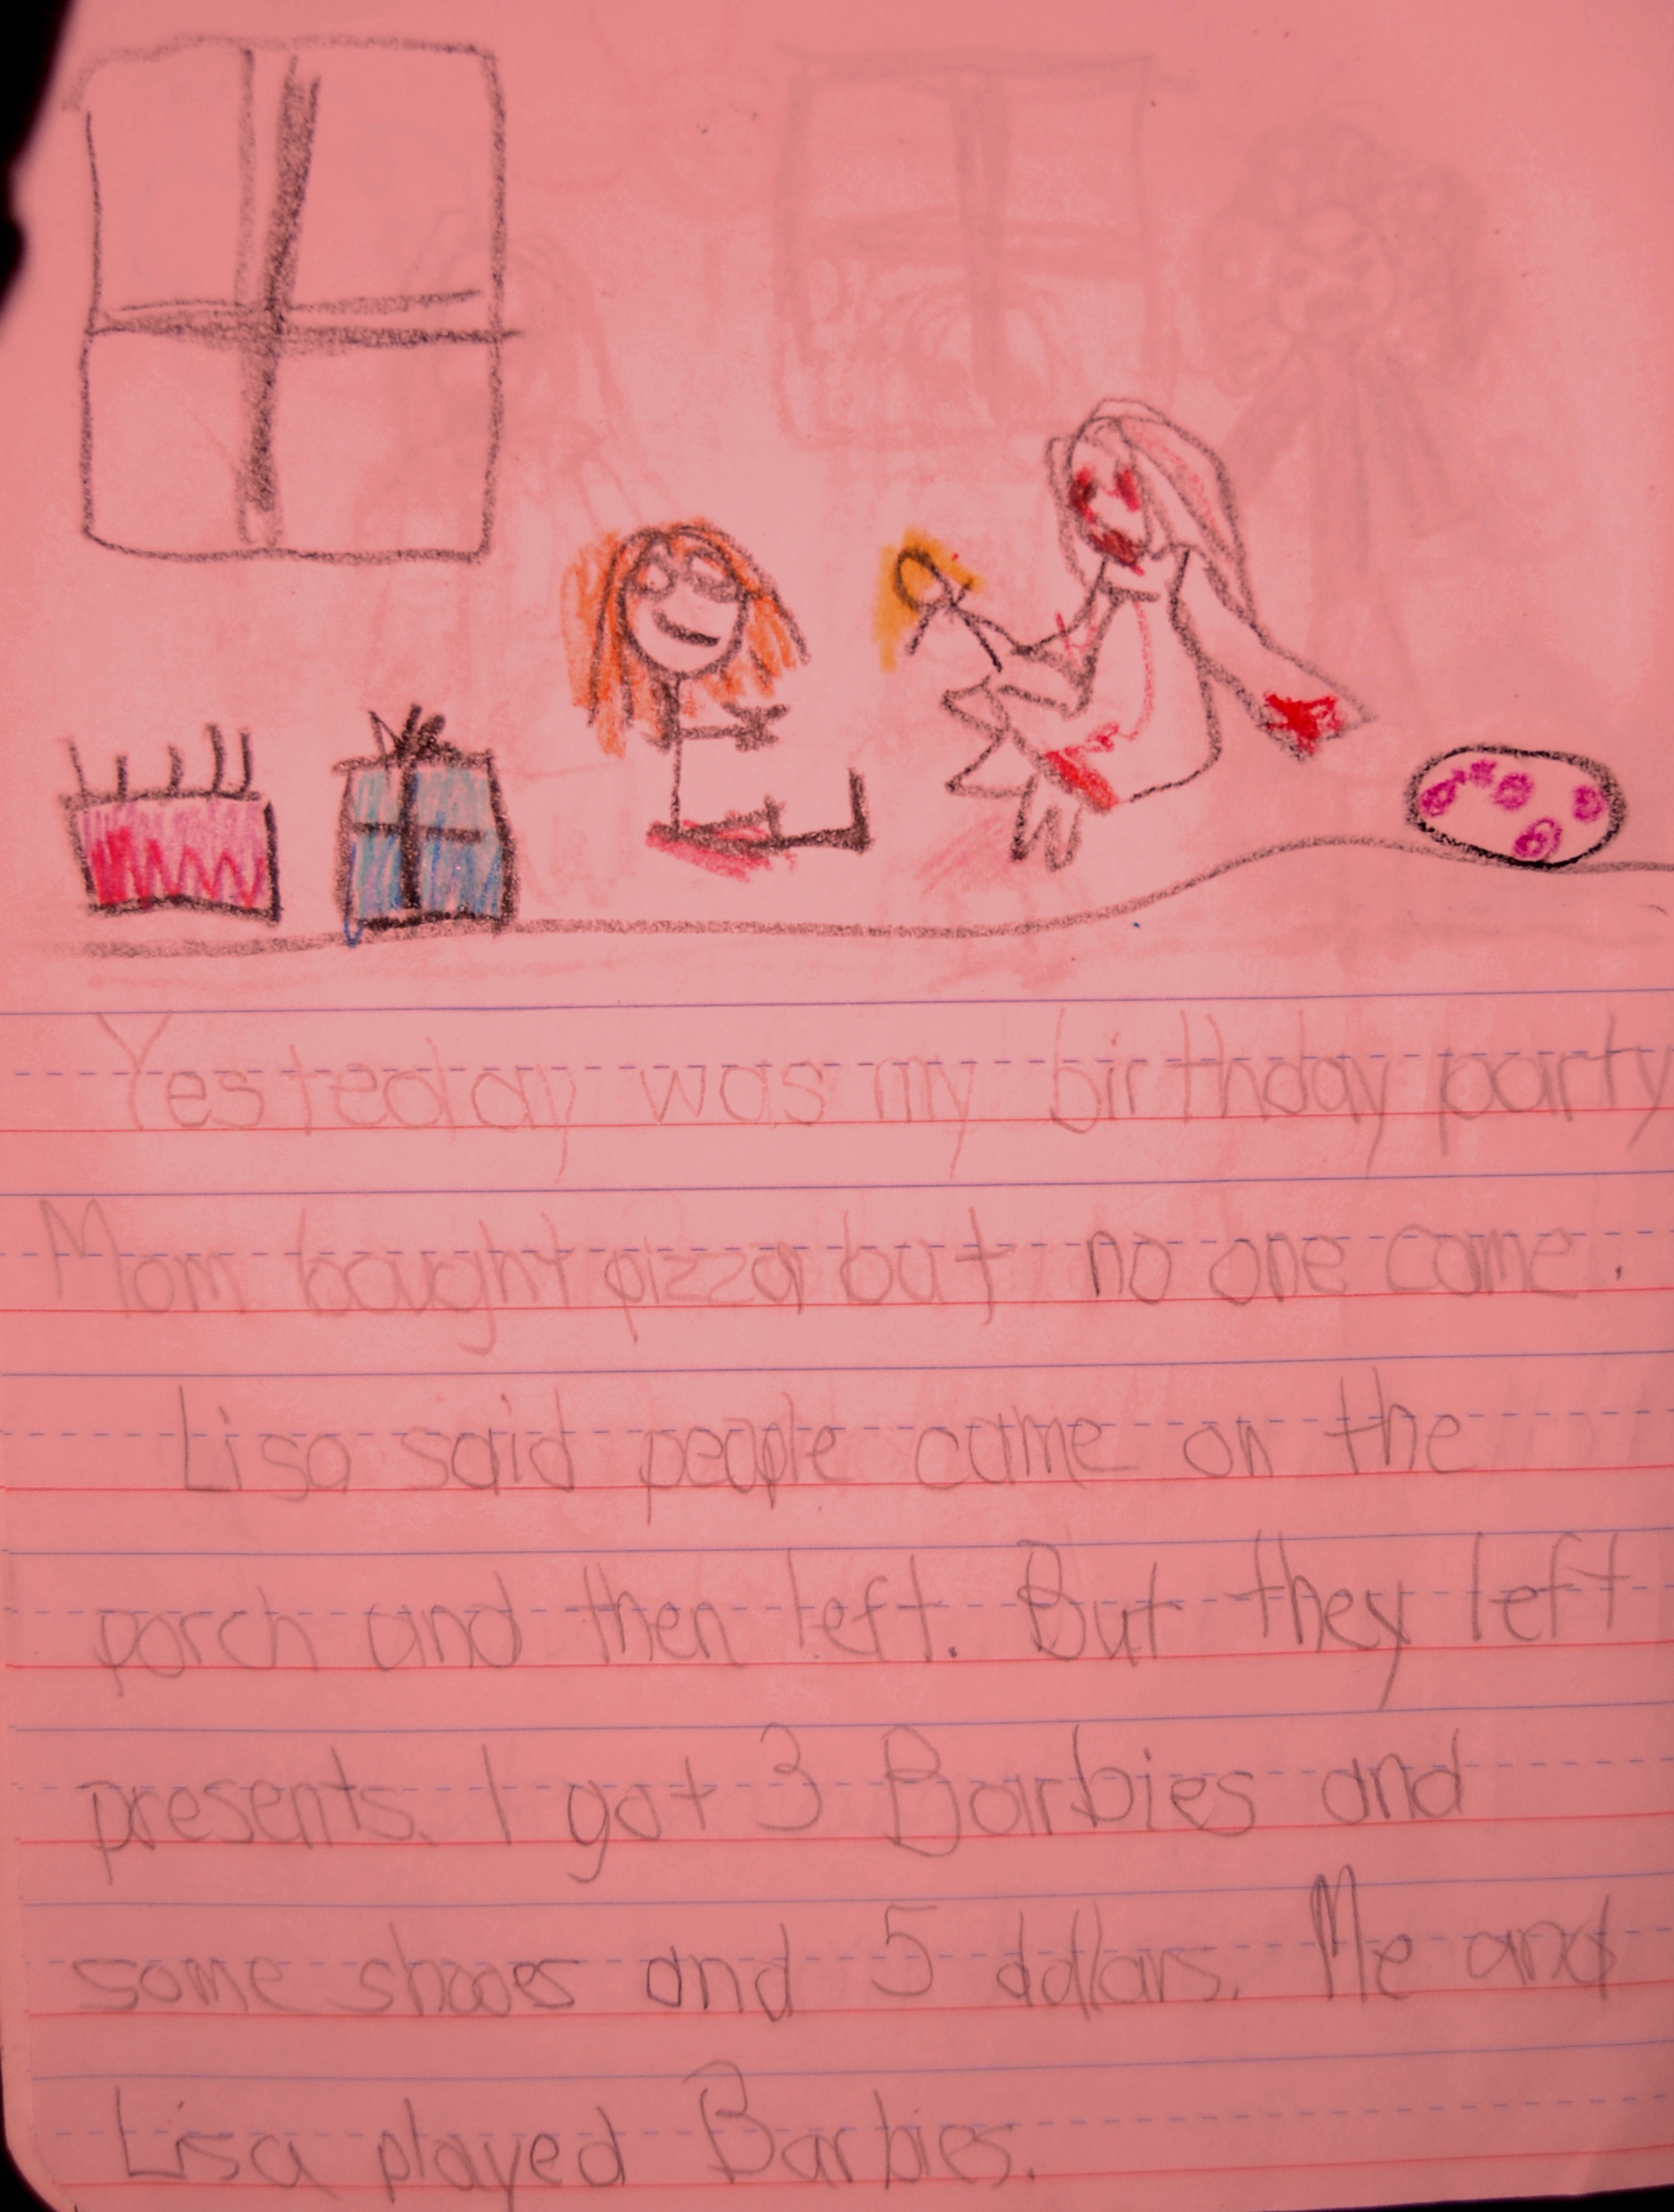 Yesteday was my birthday party
Mom bought pizza but no one came.
Lisa said people came on the
porch and then left. But they left
presents. I got 3 Barbies and
some shooes and 5 dollars. Me and
Lisa played Barbies.